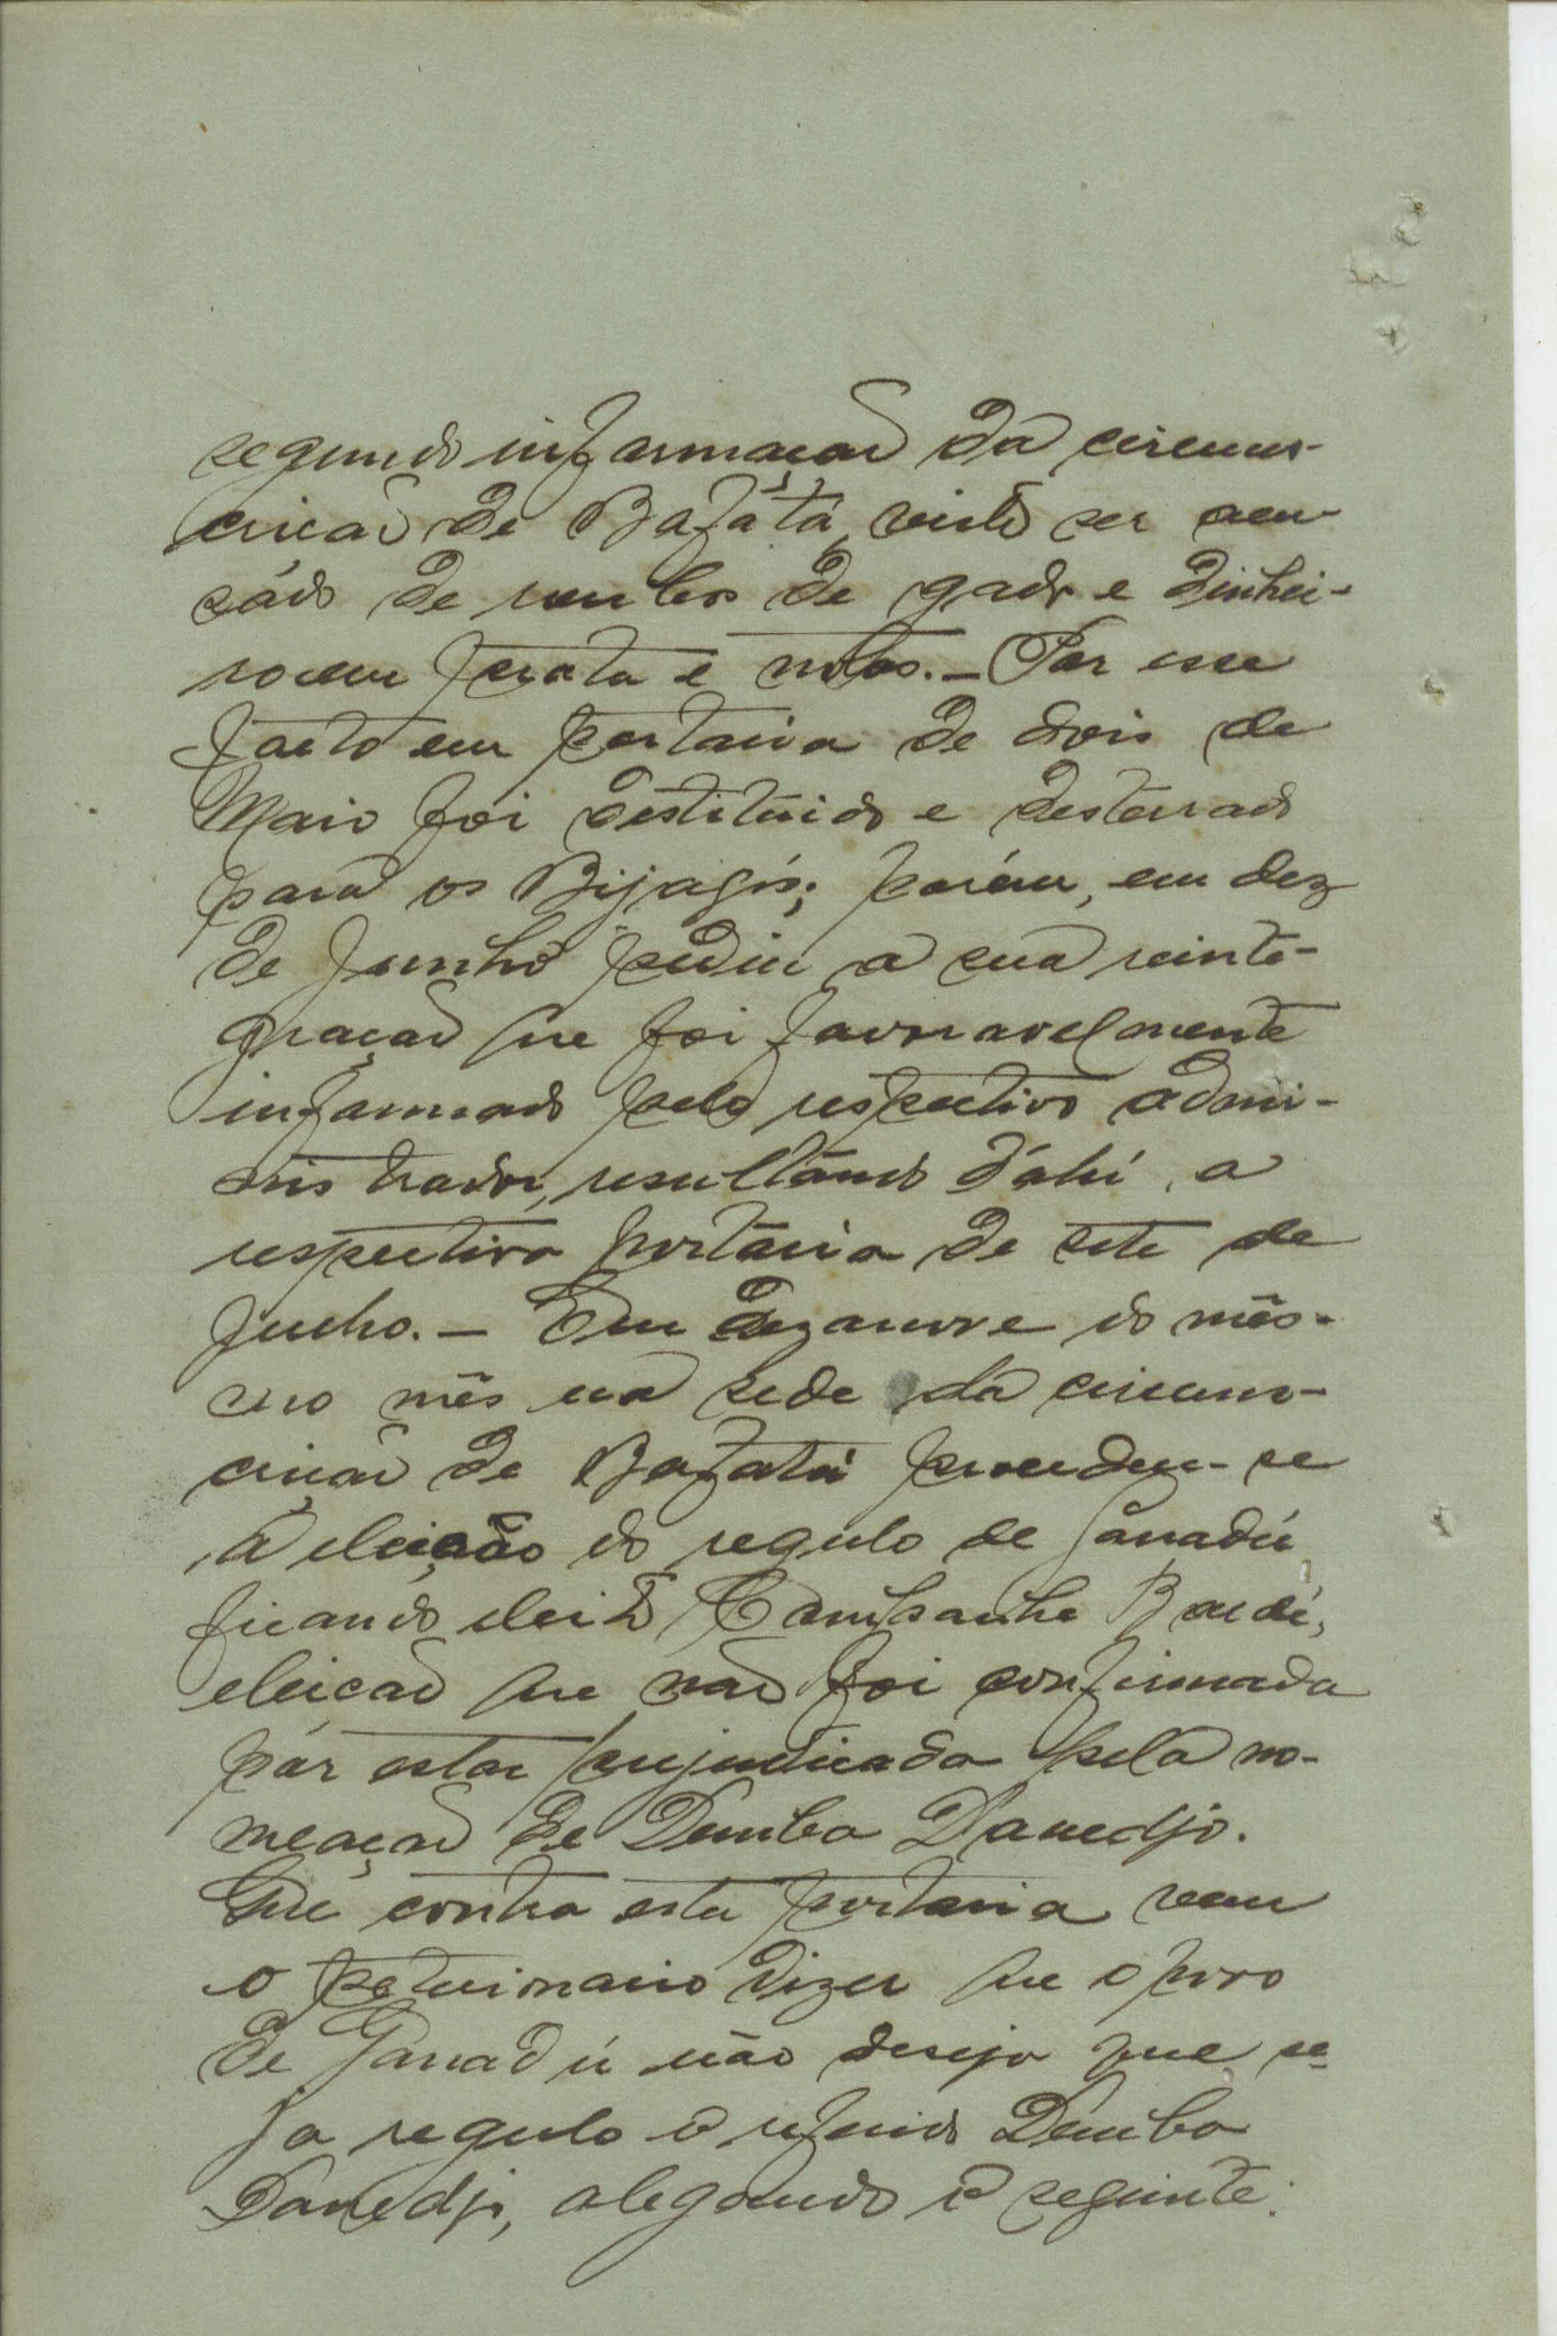 segundo informação da circuns-
crição de Bafatá, visto ser acu-
sádo de roubos de gado e dinhei-
ro em prata e notas. - Por esse
facto em portaria de dois de
Maio foi destituido e desterrado
para os Bijagós; porém, em dez
de Junho pediu a sua reinte-
gração que foi favoravelmente
informado pelo respectivo admi-
nistrador, resultando d'ahi, a
respectiva portaria de sete de
Julho. - Em dezanove do mês-
mo mês na sede da circuns-
crição de Bafatá procedeu-se
á eleição do regulo de Ganadú
ficando eleito Campanhe Baldé,
eleição que não foi confirmada
pór estar prejudicada pela no-
meação de Demba Danedjo.
Que contra esta portaria vem
o peticionario dizer que o povo
de Ganadú não deseja que se-
ja regulo o referido Demba
Danedjo, alegando o seguinte: